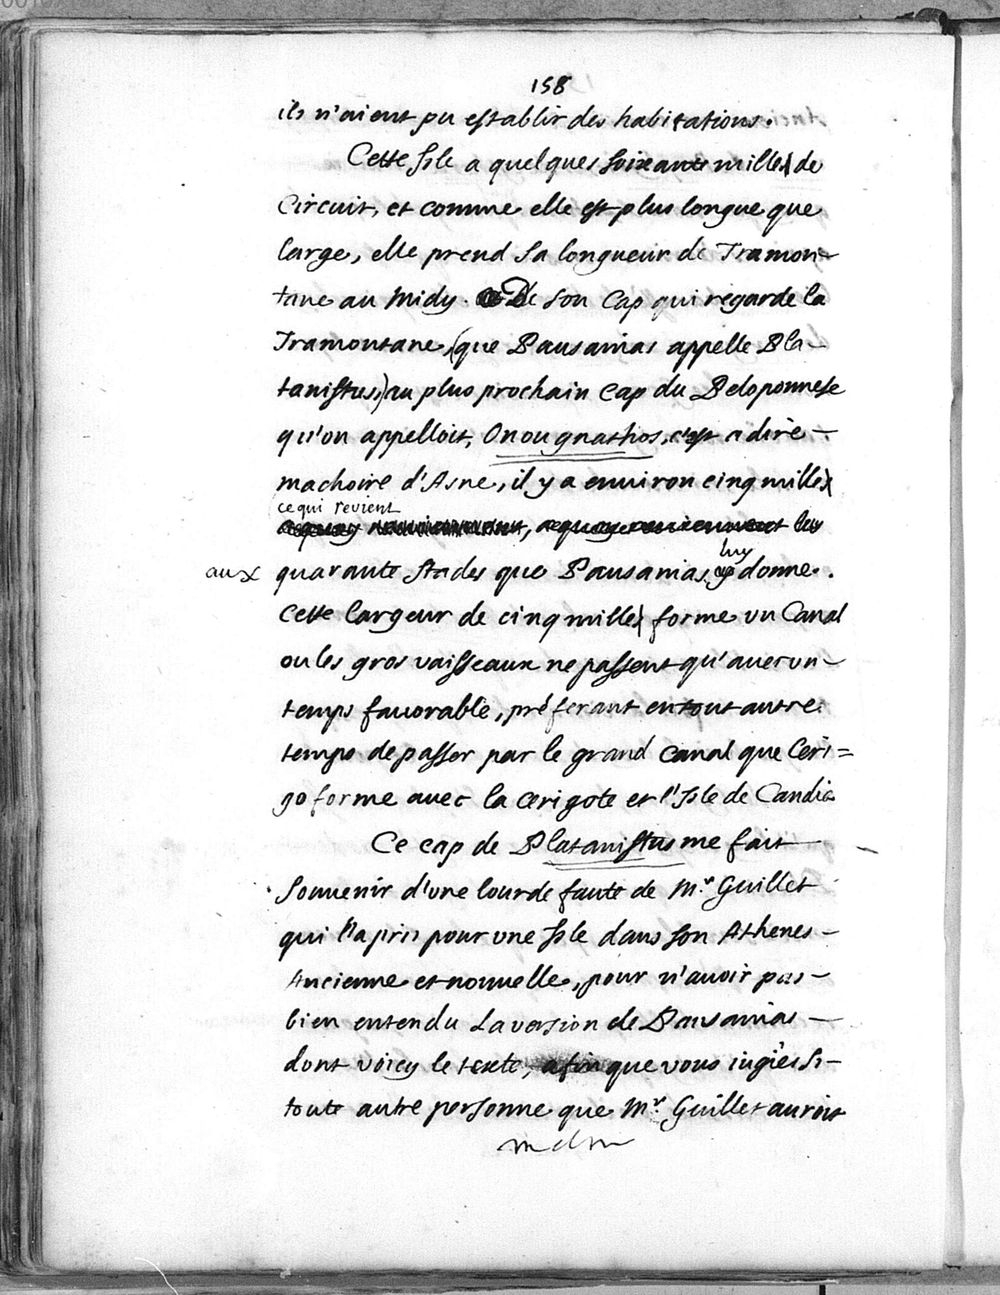 158
ils n'aient pu establir des habitations.
Cette Isle a quelques soixante milles de
Circuit, et comme elle est plus longue que
large, elle prend sa longueur de Tramon-
tane au Midy. De son Cap qui regarde la
Tramontane, (que Pausanias appelle Pla-
tanistus,) au plus prochain Cap du Peloponnese
qu'on appelloit, Onougnathos, c'est a dire
machoire d'Asne, il y a environ cinq milles
ce qui revient
les
luy
aux quarante stades que Pausanias donne.
Cette largeur de cinq milles forme un Canal
ou les gros vaisseaux ne passent qu'avec un
temps favorable, préferant en tout autre
temps de passer par le grand Canal que Ceri=
go forme avec la Cerigote et l'Isle de Candie
Ce cap de Platanistus me fait
souvenir d'une lourde faute de Mr. Guillet
qui l'a pris pour une Isle dans son Athenes
Ancienne et nouvelle, pour n'avoir pas
bien entendu la version de Pausanias
dont voicy le texte, afin que vous iugiés si
toute autre personne que Mr Guillet auroit